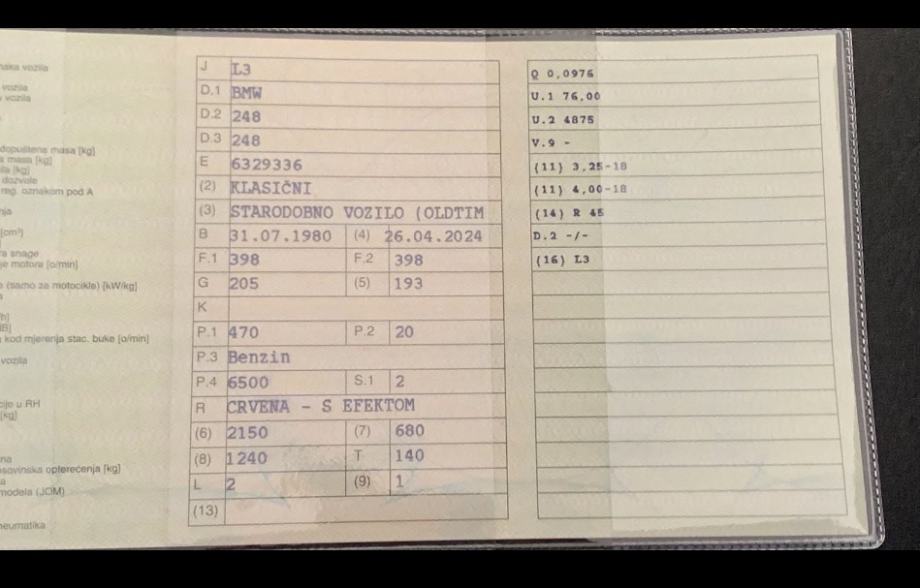 vozila
vozila
vozila
dopuštena masa [kg]
masa [kg]
[kg]
dozvole
reg. oznakom pod A
[cm³]
snage
motora [o/min]
(samo za motocikle) [kW/kg]
kod mjerenja stac. buke [o/min]
vozila
u RH
[kg]
osovinska opterećenja [kg]
modela (JOM)
pneumatika
J L3
D.1 BMW
D.2 248
D.3 248
E 6329336
(2) KLASIČNI
(3) STARODOBNO VOZILO (OLDTIM
B 31.07.1980 (4) 26.04.2024
F.1 398 F.2 398
G 205 (5) 193
K
P.1 470 P.2 20
P.3 Benzin
P.4 6500 S.1 2
R CRVENA - S EFEKTOM
(6) 2150 (7) 680
(8) 1240 T 140
L 2 (9) 1
(13)
Q 0,0976
U.1 76,00
U.2 4875
V.9 -
(11) 3,25-18
(11) 4,00-18
(14) R 45
D.2 -/-
(16) L3